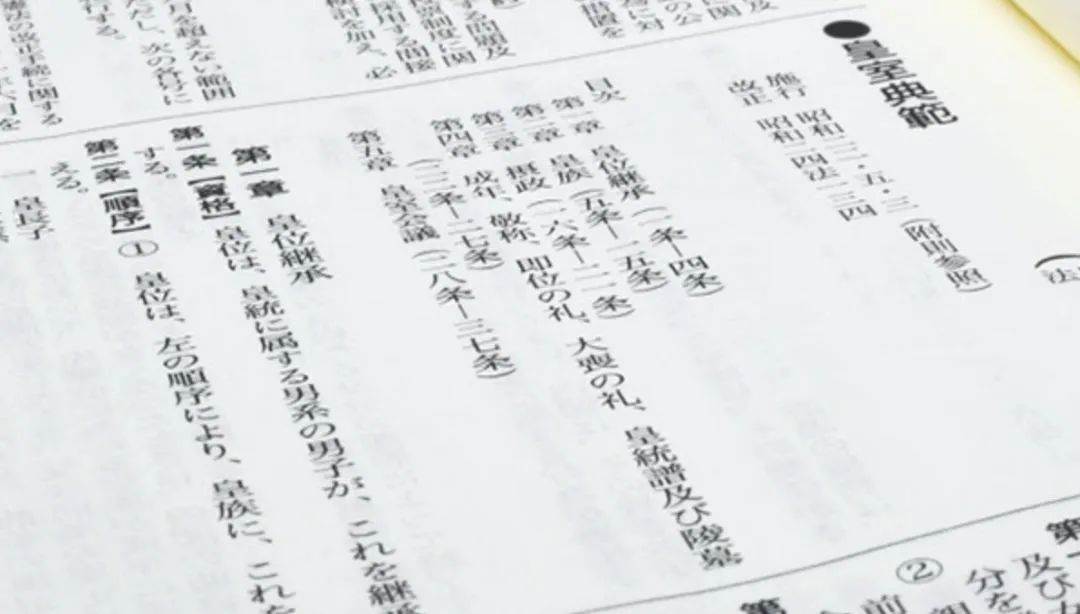 ●皇室典範
施行 昭和二二・五・三(附則参照)
改正 昭和二四法一三四
目次
第一章 皇位継承(一条―四条)
第二章 皇族(五条―一五条)
第三章 摂政(一六条―二一条)
第四章 成年、敬称、即位の礼、大喪の礼、皇統譜及び陵墓
(二二条―二七条)
第五章 皇室会議(二八条―三七条)
第一章 皇位継承
第一条【資格】 皇位は、皇統に属する男系の男子が、これを継承
する。
第二条【順序】① 皇位は、左の順序により、皇族に、これを
える。
一 皇長子
(法
措置を
する間題及
接制度に関
採用する間接
検討を加え、必
月を超えない範囲
ただし、次の各号に
行する。
②
及び
分を